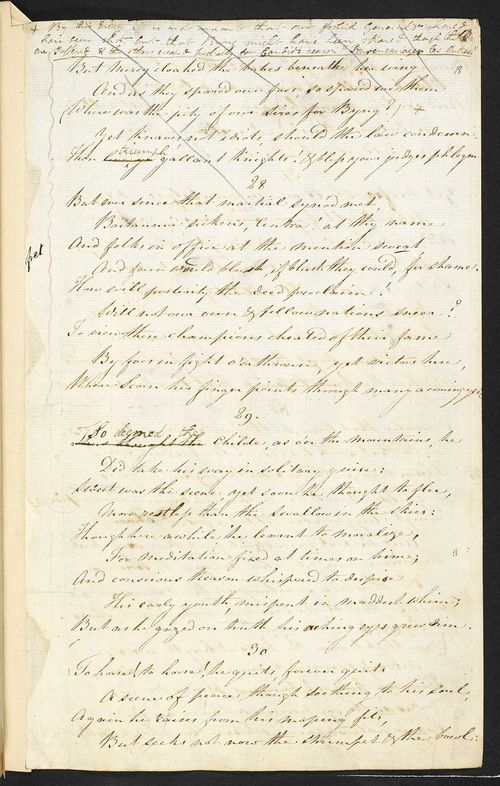 + By this
have been
one suffered & the other escaped probably for Candide's reason "pour encourager les autres"
18
But Mercy cloaked the babes beneath her wing
And as they spared our foes so spared we them
(Where was the pity of our sires for Byng?) +
Yet knaves not idiots should the law condemn.
Then triumph gallant Knights! & bless your judges phlegm
28
But ever since that martial synod met,
Britannia sickens, Cintra! at thy name
And folks in office at the mention sweat
And fain would blush, if blush they could, for shame.
How will posterity the deed proclaim!
Will not our own & fellow nations sneer?
To view these champions cheated of their fame
By foes in fight o'erthrown, yet victors here,
Where Scorn her finger points through many a coming year
29.
So deemed the Childe, as o'er the mountains he
Did take his way in solitary guise:
Sweet was the scene, yet soon he thought to flee,
More restless than the swallow in the skies:
Though here awhile he learnt to moralize,
For meditation fixed at times on him;
And conscious Reason whispered to despise
His early youth, mispent in maddest whim;
But as he gazed on truth his aching eyes grew dim.
30
To horse! to horse! he quits, forever quits
A scene of peace though soothing to his soul,
Again he rouses from his moping fits,
But seeks not now the strumpet & the bowl: